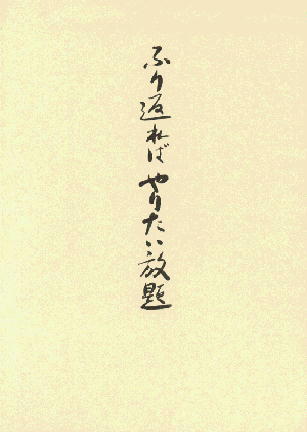 ふり返ればやりたい放題